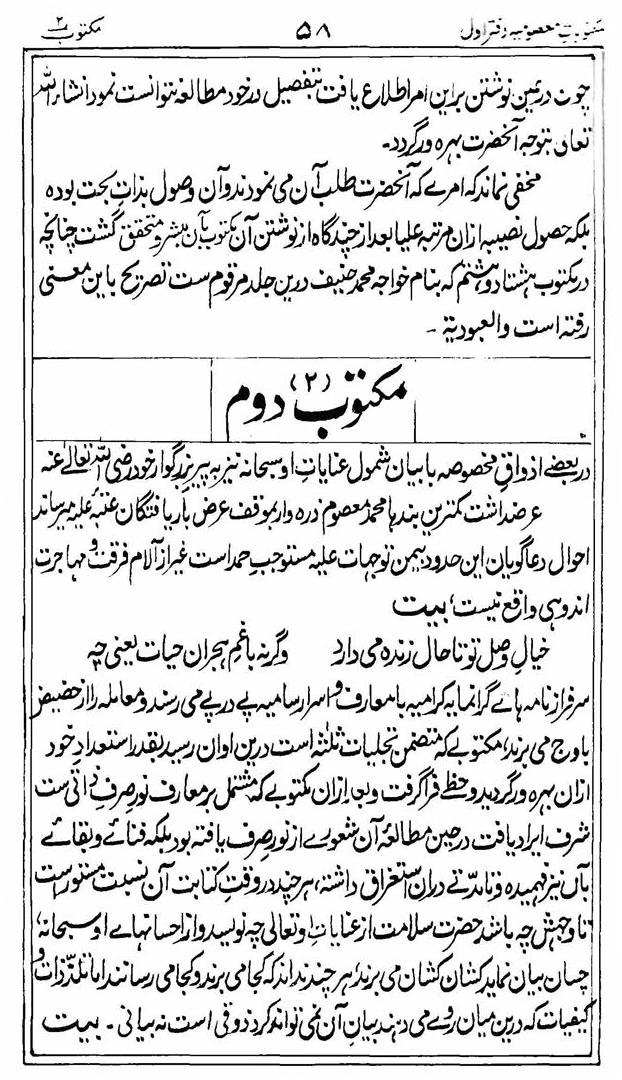 مکتوب ۲ ۵۸ مکتوبات معصومیہ دفتر اول
چون در عین نوشتن براین امر اطلاع یافت بتفصیل در خود مطالعہ نتوانست نمود انشاء اللہ
تعالیٰ بتوجہ آنحضرت بہرہ ور گردد۔
مخفی نماند کہ امرے کہ آنحضرت طلب آن می نمودند و آن وصول بذات بحت بودہ
بلکہ حصول نصیبہ ازان مرتبہ علیا بعد از چندگاہ از نوشتن آن مکتوب بآن مبشر و متحقق گشت چنانچہ
در مکتوب ہشتاد و ہشتم کہ بنام خواجہ محمد حنیف درین جلد مرقوم ست تصریح باین معنی
رفتہ است والعبودیة ۔
مکتوب (۲) دوم
در بعضے اذواق مخصوصہ با بیان شمول عنایات او سبحانہ نیز بہ پیر بزرگوار خود رضی اللہ تعالےٰ عنہ
عرضداشت کمترین بندہا محمد معصوم ذرہ وار بموقف عرض باریافتگان عتبہ علیہ میرساند
احوال دعاگویان این حدود بیمن توجہات علیہ مستوجب حمد است غیر از آلام فرقت و مہاجرت
اندوہی واقع نیست، بیت
خیالِ وصل تو تا حال زندہ می دارد وگرنہ با غمِ ہجران حیات یعنی چہ
سرفراز نامہ ہاے گرانمایہ گرامیہ با معارف و اسرار سامیہ پے در پے می رسند و معاملہ را از حضیض
باوج می برند، مکتوبے کہ متضمن تجلیات ثلٰثہ است درین اوان رسید بقدر استعداد خود
ازان بہرہ ور گردید و حظے فراگرفت و بعد ازان مکتوبے کہ مشتمل بر معارف نور صرفِ ذاتی ست
شرف ایراد یافت در حین مطالعۂ آن شعورے از نور صرف یافتہ بود بلکہ فنائے و بقائے
بآں نیز فہمیدہ و تا مدتے دران استغراق داشتہ، ہر چند در وقتِ کتابت آن نسبت مستور است
تا وجہش چہ باشد حضرت سلامت از عنایاتِ او تعالیٰ چہ نویسد و از احسانہاے او سبحانہ،
چساں بیان نماید کشان کشان می برند، ہر چند نداند کہ کجا می برند و کجا می رسانند اما تلذذات و
کیفیات کہ درین میان روے می دہند بیانِ آن نمی تواند کرد ذوقی است نہ بیانی۔ بیت